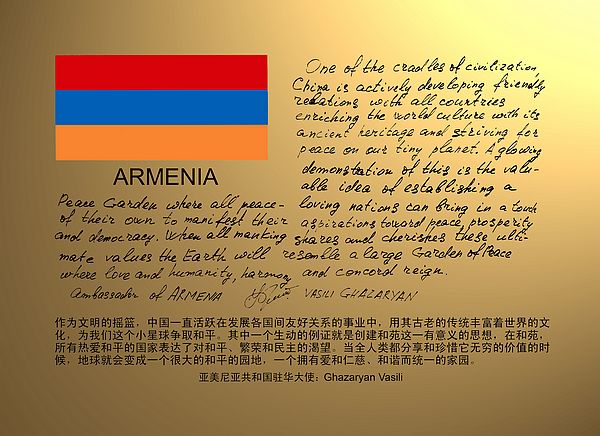 One of the cradles of civilization,
China is actively developing friendly
relations with all countries
enriching the world culture with its
ancient heritage and striving for
peace on our tiny planet. A glowing
demonstration of this is the valu-
able idea of establishing a
ARMENIA
Peace Garden where all peace- loving nations can bring in a touch
of their own to manifest their aspirations toward peace, prosperity
and democracy. When all manking shares and cherishes these ulti-
mate values the Earth will resemble a large Garden of Peace
where love and humanity, harmony and concord reign.
Ambassador of ARMENIA VASILI GHAZARYAN
作为文明的摇篮，中国一直活跃在发展各国间友好关系的事业中，用其古老的传统丰富着世界的文
化，为我们这个小星球争取和平。其中一个生动的例证就是创建和苑这一有意义的思想，在和苑，
所有热爱和平的国家表达了对和平、繁荣和民主的渴望。当全人类都分享和珍惜它无穷的价值的时
候，地球就会变成一个很大的和平的园地，一个拥有爱和仁慈、和谐而统一的家园。
亚美尼亚共和国驻华大使：Ghazaryan Vasili